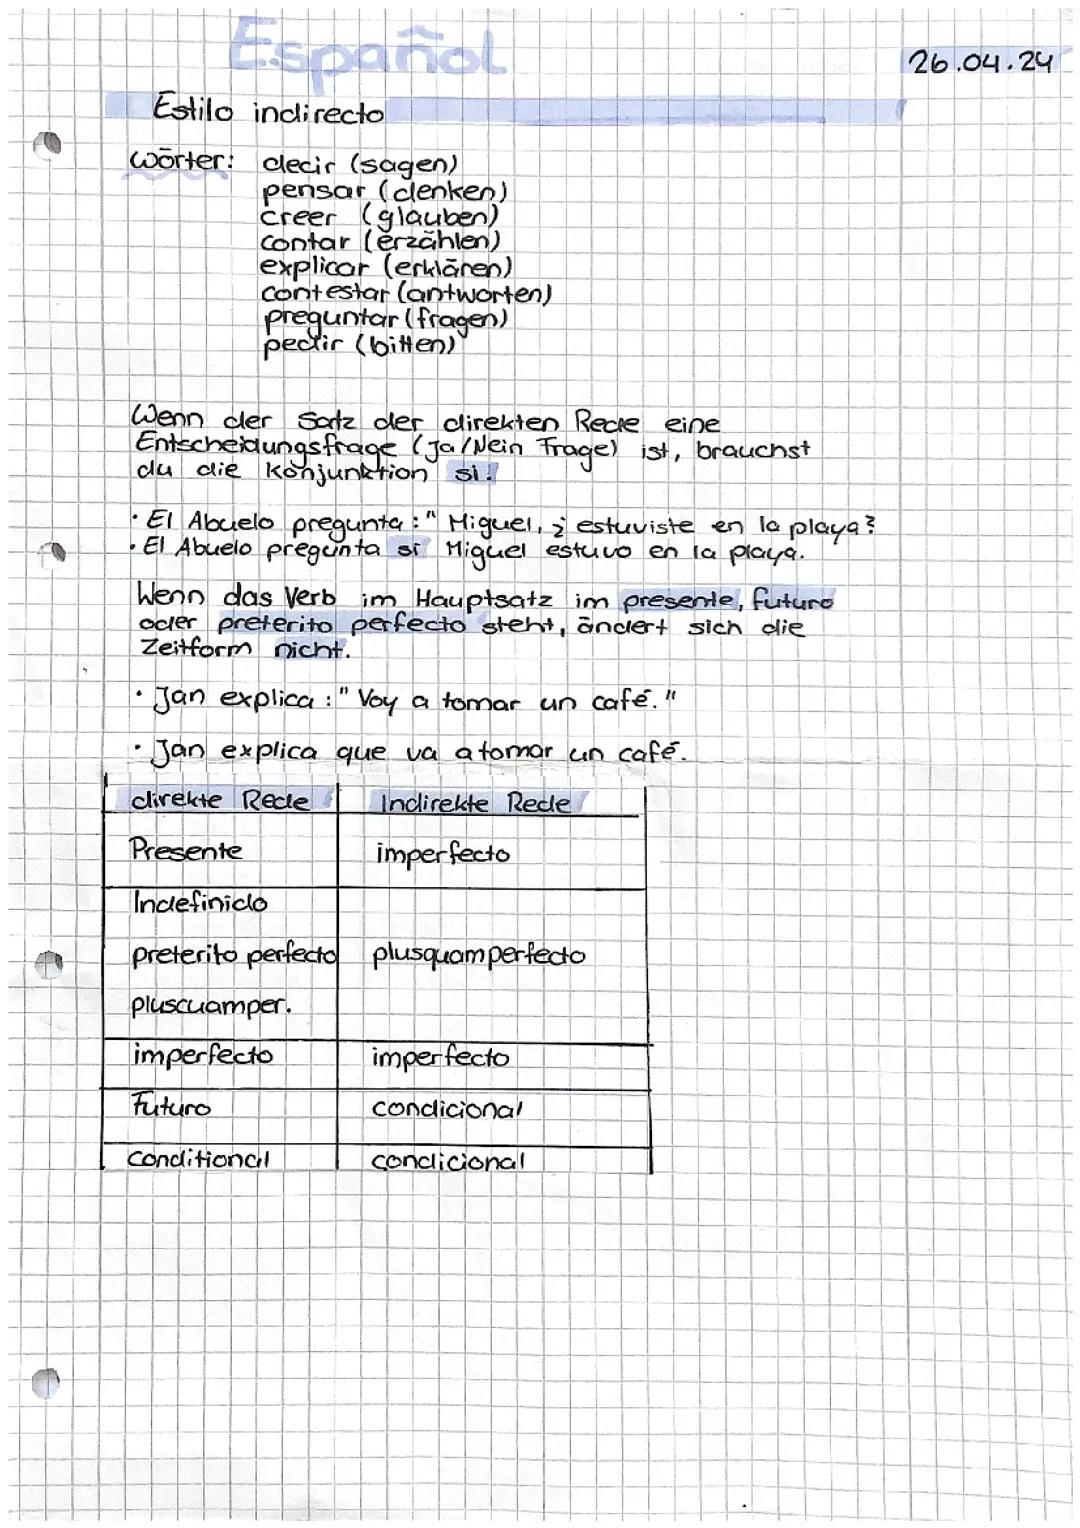 Español
26.04.24
Estilo indirecto
Wörter: decir (sagen)
pensar (denken)
creer (glauben)
contar (erzählen)
explicar (erklären)
contestar (antworten)
preguntar (fragen)
pedir (bitten)
Wenn der Satz der direkten Rede eine
Entscheidungsfrage (Ja/Nein Frage) ist, brauchst
du die Konjunktion si!
· El Abuelo pregunta: " Miguel, ¿ estuviste en la playa?
· El Abuelo pregunta si Miguel estuvo en la playa.
Wenn das Verb im Hauptsatz im presente, futuro
oder preterito perfecto steht, ändert sich die
Zeitform nicht.
· Jan explica : " Voy a tomar un café. "
· Jan explica que va a tomar un café.
direkte Rede Indirekte Rede
Presente imperfecto
Indefinido
preterito perfecto plusquamperfecto
pluscuamper.
imperfecto imperfecto
Futuro condicional
conditional condicional